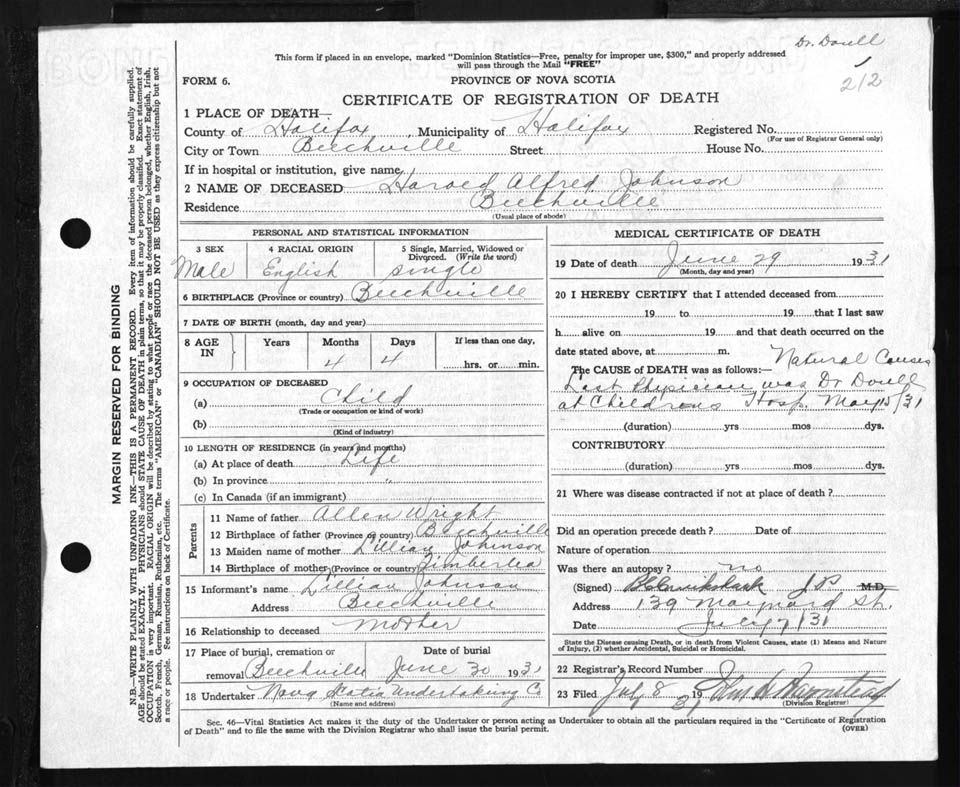 Dr. Dovell
This form if placed in an envelope, marked "Dominion Statistics—Free, penalty for improper use, $300," and properly addressed
will pass through the Mail "FREE"
212
FORM 6.
PROVINCE OF NOVA SCOTIA
CERTIFICATE OF REGISTRATION OF DEATH
1 PLACE OF DEATH—
County of Halifax, Municipality of Halifax Registered No.
(For use of Registrar General only)
City or Town Beechville Street House No.
If in hospital or institution, give name
2 NAME OF DECEASED Harold Alfred Johnson
Residence Beechville
(Usual place of abode)
PERSONAL AND STATISTICAL INFORMATION
3 SEX 4 RACIAL ORIGIN 5 Single, Married, Widowed or
Divorced. (Write the word)
Male English single
6 BIRTHPLACE (Province or country) Beechville
7 DATE OF BIRTH (month, day and year)
8 AGE IN Years Months Days If less than one day,
4 4 hrs. or min.
9 OCCUPATION OF DECEASED
(a) Child
(Trade or occupation or kind of work)
(b)
(Kind of industry)
10 LENGTH OF RESIDENCE (in years and months)
(a) At place of death Life
(b) In province "
(c) In Canada (if an immigrant)
Parents
11 Name of father Allen Wright
12 Birthplace of father (Province or country) Beechville
13 Maiden name of mother Lillian Johnson
14 Birthplace of mother (Province or country) Timberlea
15 Informant's name Lillian Johnson
Address Beechville
16 Relationship to deceased Mother
17 Place of burial, cremation or Date of burial
removal Beechville June 30 1931
18 Undertaker Nova Scotia Undertaking Co
(Name and address)
MEDICAL CERTIFICATE OF DEATH
19 Date of death June 29 1931
(Month, day and year)
20 I HEREBY CERTIFY that I attended deceased from
19 to 19 that I last saw
h alive on 19 and that death occurred on the
date stated above, at m.
The CAUSE of DEATH was as follows:— Natural Causes
Last Physician was Dr Dovell
at Childrens Hosp. May 15/31
(duration) yrs mos dys.
CONTRIBUTORY
(duration) yrs. mos. dys.
21 Where was disease contracted if not at place of death?
Did an operation precede death? Date of
Nature of operation
Was there an autopsy? no
(Signed) J.P. M.D.
Address 139 Maynard St.
Date July 7/31
State the Disease causing Death, or in death from Violent Causes, state (1) Means and Nature
of Injury, (2) whether Accidental, Suicidal or Homicidal.
22 Registrar's Record Number
23 Filed July 8 1931
(Division Registrar)
Sec. 46—Vital Statistics Act makes it the duty of the Undertaker or person acting as Undertaker to obtain all the particulars required in the "Certificate of Registration
of Death" and to file the same with the Division Registrar who shall issue the burial permit.
(OVER)
MARGIN RESERVED FOR BINDING
N.B.—WRITE PLAINLY WITH UNFADING INK—THIS IS A PERMANENT RECORD. Every item of information should be carefully supplied.
AGE should be stated EXACTLY. PHYSICIANS should STATE CAUSE OF DEATH in plain terms, so that it may be properly classified. Exact statement of
OCCUPATION is very important. RACIAL ORIGIN will be described by stating to what people or race the deceased person belonged, whether English, Irish,
Scotch, French, German, Russian, Ruthenian, etc. The terms "AMERICAN" or "CANADIAN" SHOULD NOT BE USED as they express citizenship but not
a race or people. See instructions on back of Certificate.